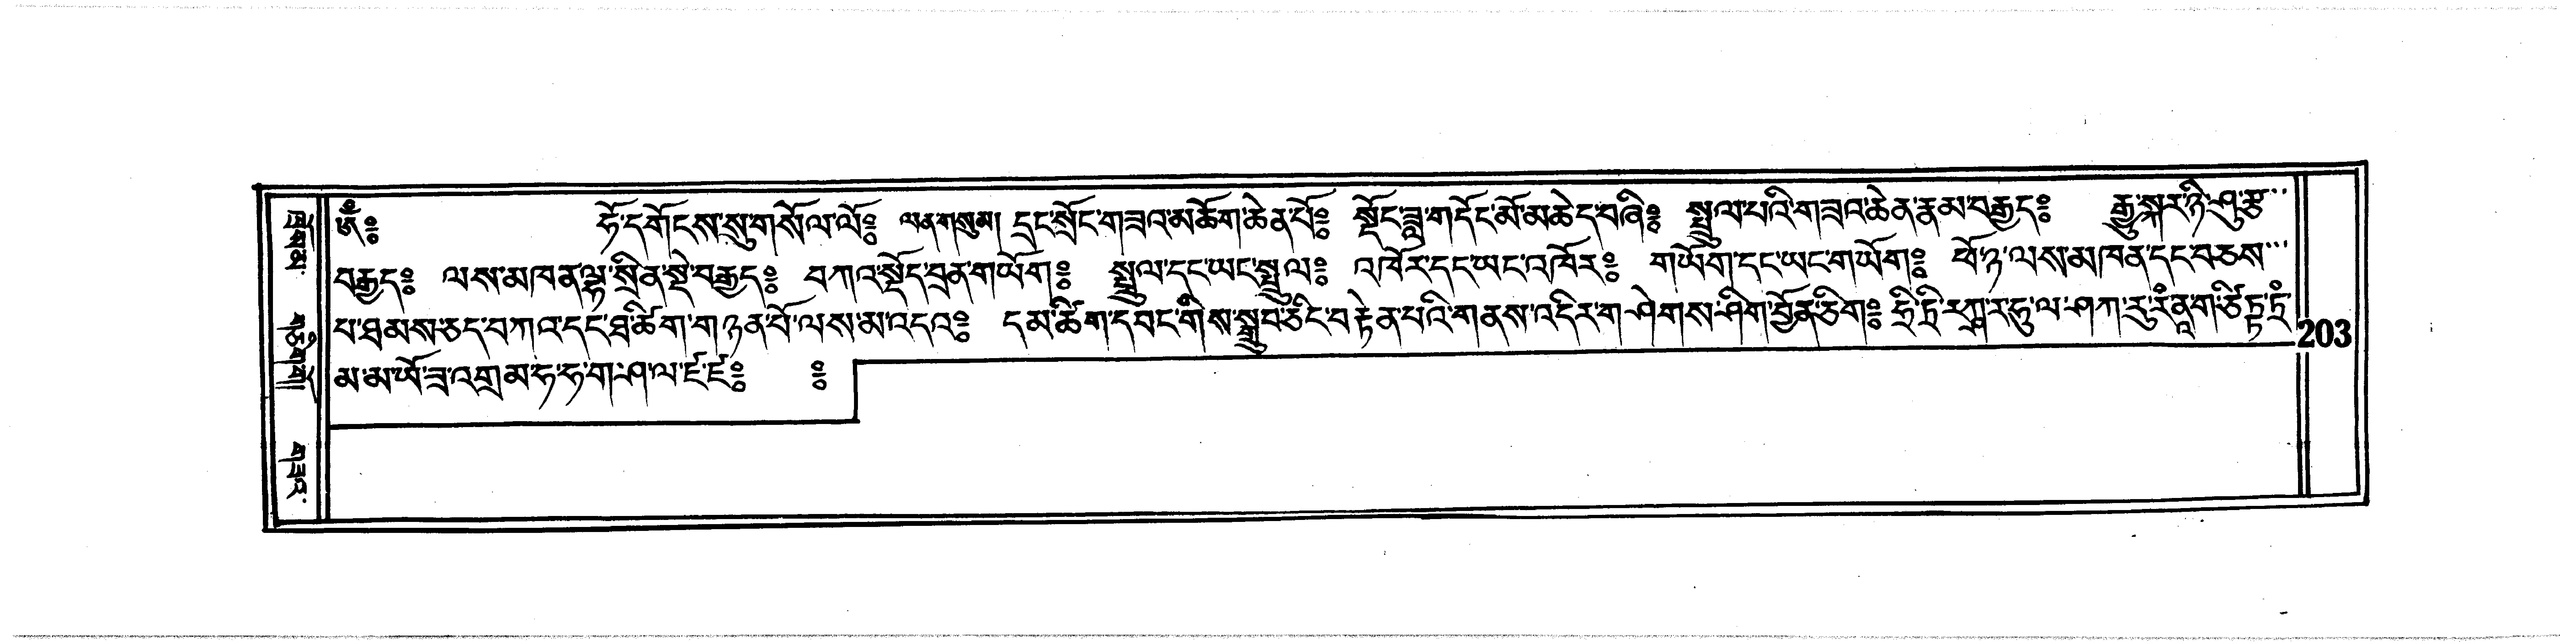 ཨོཾ༔ ཧོ་དགོངས་སུ་གསོལ་ལོ༔ ལན་གསུམ། དྲང་སྲོང་གཟའ་མཆོག་ཆེན་པོ༔ སྟོང་ཟླ་གདོང་མོ་མཆེད་བཞི༔ སྤྲུལ་པའི་གཟའ་ཆེན་རྣམ་བརྒྱད༔ རྒྱུ་སྐར་ཉི་ཤུ་རྩ་
བརྒྱད༔ ལས་མཁན་ལྷ་སྲིན་སྡེ་བརྒྱད༔ བཀའ་སྡོད་བྲན་གཡོག༔ སྤྲུལ་དང་ཡང་སྤྲུལ༔ འཁོར་དང་ཡང་འཁོར༔ གཡོག་དང་ཡང་གཡོག༔ ཕོ་ཉ་ལས་མཁན་དང་བཅས་
པ་ཐམས་ཅད་བཀའ་དང་ཐ་ཚིག་གཉན་པོ་ལས་མ་འདའ༔ དམ་ཚིག་དབང་གིས་སྒྲུབ་ཅིང་བརྟེན་པའི་གནས་འདིར་གཤེགས་ཤིག་བྱོན་ཅིག༔
མ་མ་ཡོ་ཟླ་འགྲམ་ཧ་ཧ་ག་ཤ་ལ་ཛཿཛཿ༔ ༔
ཁྲགས་ གཅིག གཟའ་
203